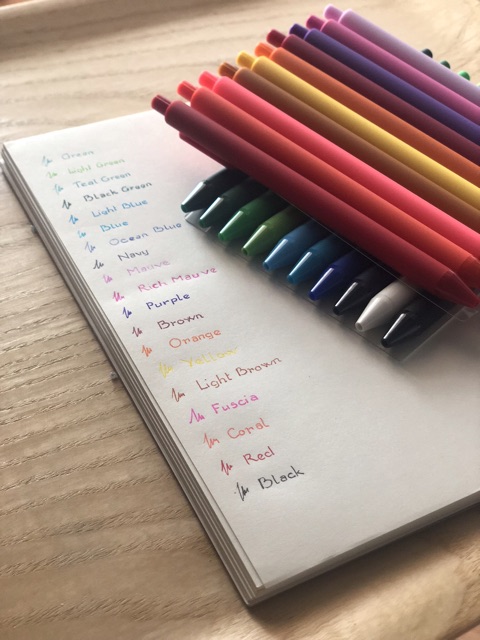 Green
Light Green
Teal Green
Black Green
Light Blue
Blue
Ocean Blue
Navy
Mauve
Rich Mauve
Purple
Brown
Orange
Yellow
Light Brown
Fuscia
Coral
Red
Black